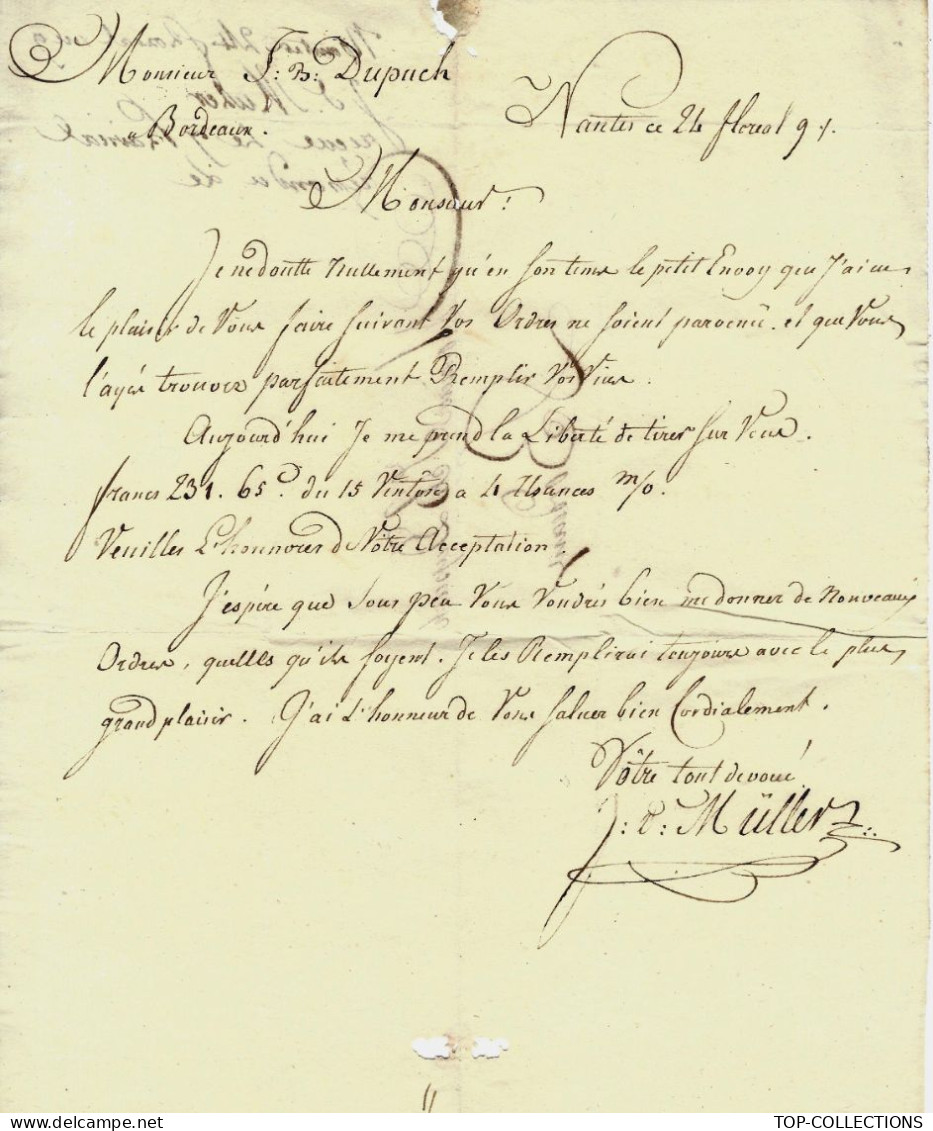 Monsieur J: B: Dupuch
a Bordeaux.
Nantes ce 24 floreal 9 /.
Monsieur !
Je ne doutte Nullement qu'en son tems le petit Envoy que J'ai eu
le plaisir de Vous faire suivant Vos Ordres ne soient parvenü. et que Vous
l'ayés trouvez parfaitement Remplir Vos Vües.
Aujourd'hui Je me prend la Liberté de tirer sur Vous.
francs 231. 65c. du 15 Ventôse a 4 Usances m/o.
Veuilles L'honnorer de Vôtre Acceptation.
J'espére que sous peu Vous Voudrés bien me donner de Nouveaux
Ordres, quells qu'ils soyent. Je les Remplirai toujours avec le plus
grand plaisir. J'ai L'honneur de Vous saluer bien Cordialement.
Vôtre tout devoué
J: P: Müller
TOP-COLLECTIONS